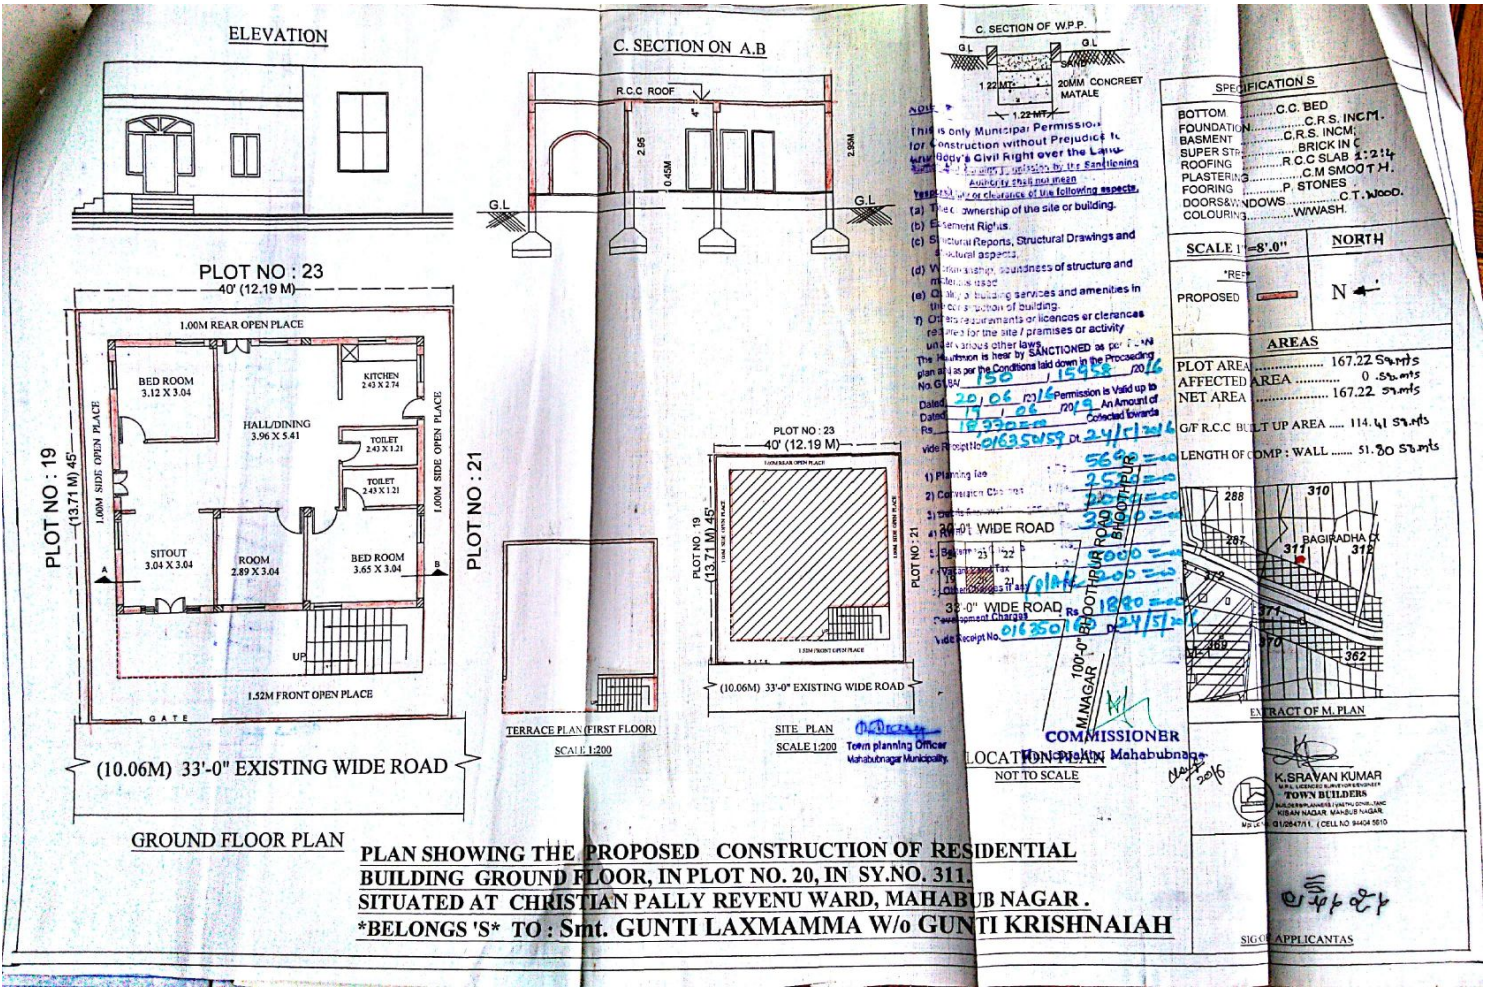 ELEVATION
C. SECTION ON A.B
R.C.C ROOF
4"
2.95
0.45M
2.95M
G.L
G.L
C. SECTION OF W.P.P.
G.L
G.L
SAND
20MM CONCREET
MATALE
1.22 MT
1.22 MT
PLOT NO : 23
40' (12.19 M)
1.00M REAR OPEN PLACE
BED ROOM
3.12 X 3.04
KITCHEN
2.43 X 2.74
HALL/DINING
3.96 X 5.41
TOILET
2.43 X 1.21
TOILET
2.43 X 1.21
SITOUT
3.04 X 3.04
ROOM
2.89 X 3.04
BED ROOM
3.65 X 3.04
A
B
UP
1.00M SIDE OPEN PLACE
1.00M SIDE OPEN PLACE
PLOT NO : 19
(13.71 M) 45'
PLOT NO : 21
1.52M FRONT OPEN PLACE
GATE
(10.06M) 33'-0" EXISTING WIDE ROAD
GROUND FLOOR PLAN
TERRACE PLAN (FIRST FLOOR)
SCALE 1:200
PLOT NO : 23
40' (12.19 M)
1.00M REAR OPEN PLACE
PLOT NO. 19
(13.71 M) 45'
PLOT NO : 21
1.52M FRONT OPEN PLACE
GATE
(10.06M) 33'-0" EXISTING WIDE ROAD
SITE PLAN
SCALE 1:200
Town planning Officer
Mahabubnagar Municipality.
NOTE
This is only Municipal Permission
for Construction without Prejudice to
Body's Civil Right over the Land
by the Sanctioning
Authority shall not mean
or clearance of the following aspects.
(a) ownership of the site or building.
(b) Easement Rights.
(c) Structural Reports, Structural Drawings and
Structural aspects.
(d) Workmanship, soundness of structure and
materials used
(e) Quality of building services and amenities in
the construction of building.
f) Others requirements or licences or clerances
required for the site / premises or activity
under various other laws
The is hear by SANCTIONED as per
plan and as per the Conditions laid down in the Proceeding
No. G1/BA/ 150 / 15958 /2016
Dated 20/06/2016 Permission is Valid up to
Dated 19/06/2019 An Amount of
Rs Collected towards
vide Receipt No 016350159 Dt. 24/5/2016
1) Planning fee
2) Conversion Charges
30'-0" WIDE ROAD
23 22
19 20 21
33'-0" WIDE ROAD
Development Charges Rs 1880=00
Vide Receipt No. 016350160 Dt 24/5/2016
M.NAGAR 100'-0" BHOOTHPUR ROAD BHOOTHPUR
COMMISSIONER
Municipality Mahabubnagar
LOCATION PLAN
NOT TO SCALE
SPECIFICATION S
BOTTOM ............C.C. BED
FOUNDATION............C.R.S. INCM.
BASMENT ............C.R.S. INCM;
SUPER STR............BRICK IN C
ROOFING ............R.C.C SLAB 1:2:4
PLASTERING............C.M SMOOTH.
FOORING ............P. STONES
DOORS&WINDOWS............C.T. WOOD.
COLOURING............W/WASH.
SCALE 1"=8'.0"
NORTH
*REF*
PROPOSED
N
AREAS
PLOT AREA .................. 167.22 Sq.mts
AFFECTED AREA ............ 0 .Sq.mts
NET AREA .................. 167.22 sq.mts
G/F R.C.C BUILT UP AREA ..... 114.41 Sq.mts
LENGTH OF COMP : WALL ....... 51.80 Sq.mts
288
310
287
311
312
BAGIRADHA
372
371
369
370
362
EXTRACT OF M. PLAN
K.SRAVAN KUMAR
TOWN BUILDERS
KISAN NAGAR. MAHBUB NAGAR.
SIG OF APPLICANTAS
PLAN SHOWING THE PROPOSED CONSTRUCTION OF RESIDENTIAL
BUILDING GROUND FLOOR, IN PLOT NO. 20, IN SY.NO. 311.
SITUATED AT CHRISTIAN PALLY REVENU WARD, MAHABUB NAGAR .
*BELONGS 'S* TO : Smt. GUNTI LAXMAMMA W/o GUNTI KRISHNAIAH